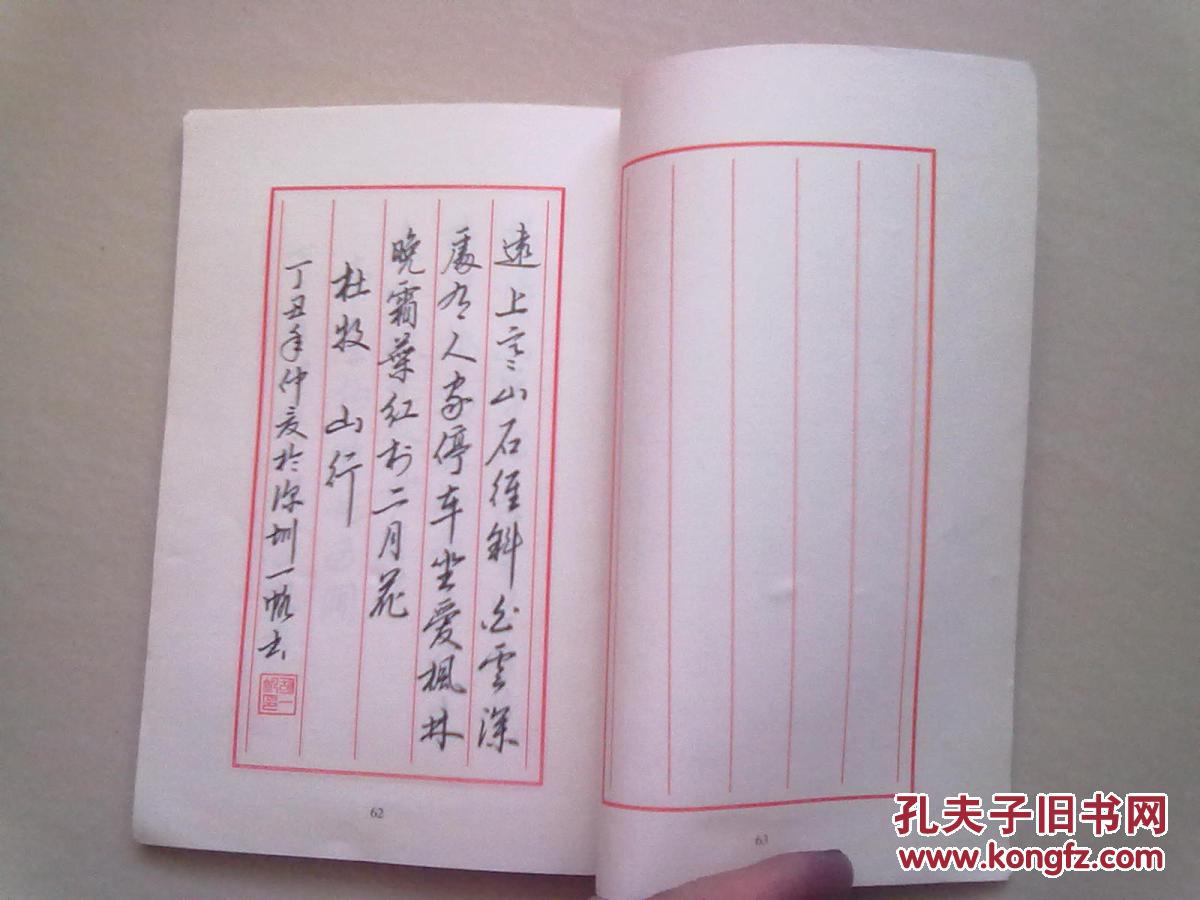 遠上寒山石徑斜白雲深
處有人家停車坐愛楓林
晚霜葉紅於二月花
杜牧 山行
丁丑年仲夏於深圳一帆书
62
63
孔夫子旧书网
www.kongfz.com